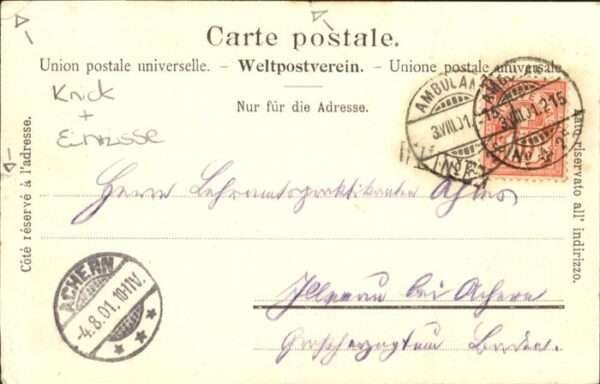 Carte postale.
Union postale universelle. – Weltpostverein. – Unione postale universale
Nur für die Adresse.
Knick
+
Einrisse
Côté réservé à l'adresse.
Lato riservato all' indirizzo.
AMBULANT
3.VIII.01.
No
AMBULANT
3.VIII.01.215
No
Herrn Lehramtspraktikanten Ahles
ACHERN
-4.8.01.10-11V.
Illenau bei Achern
Grossherzogtum Baden.